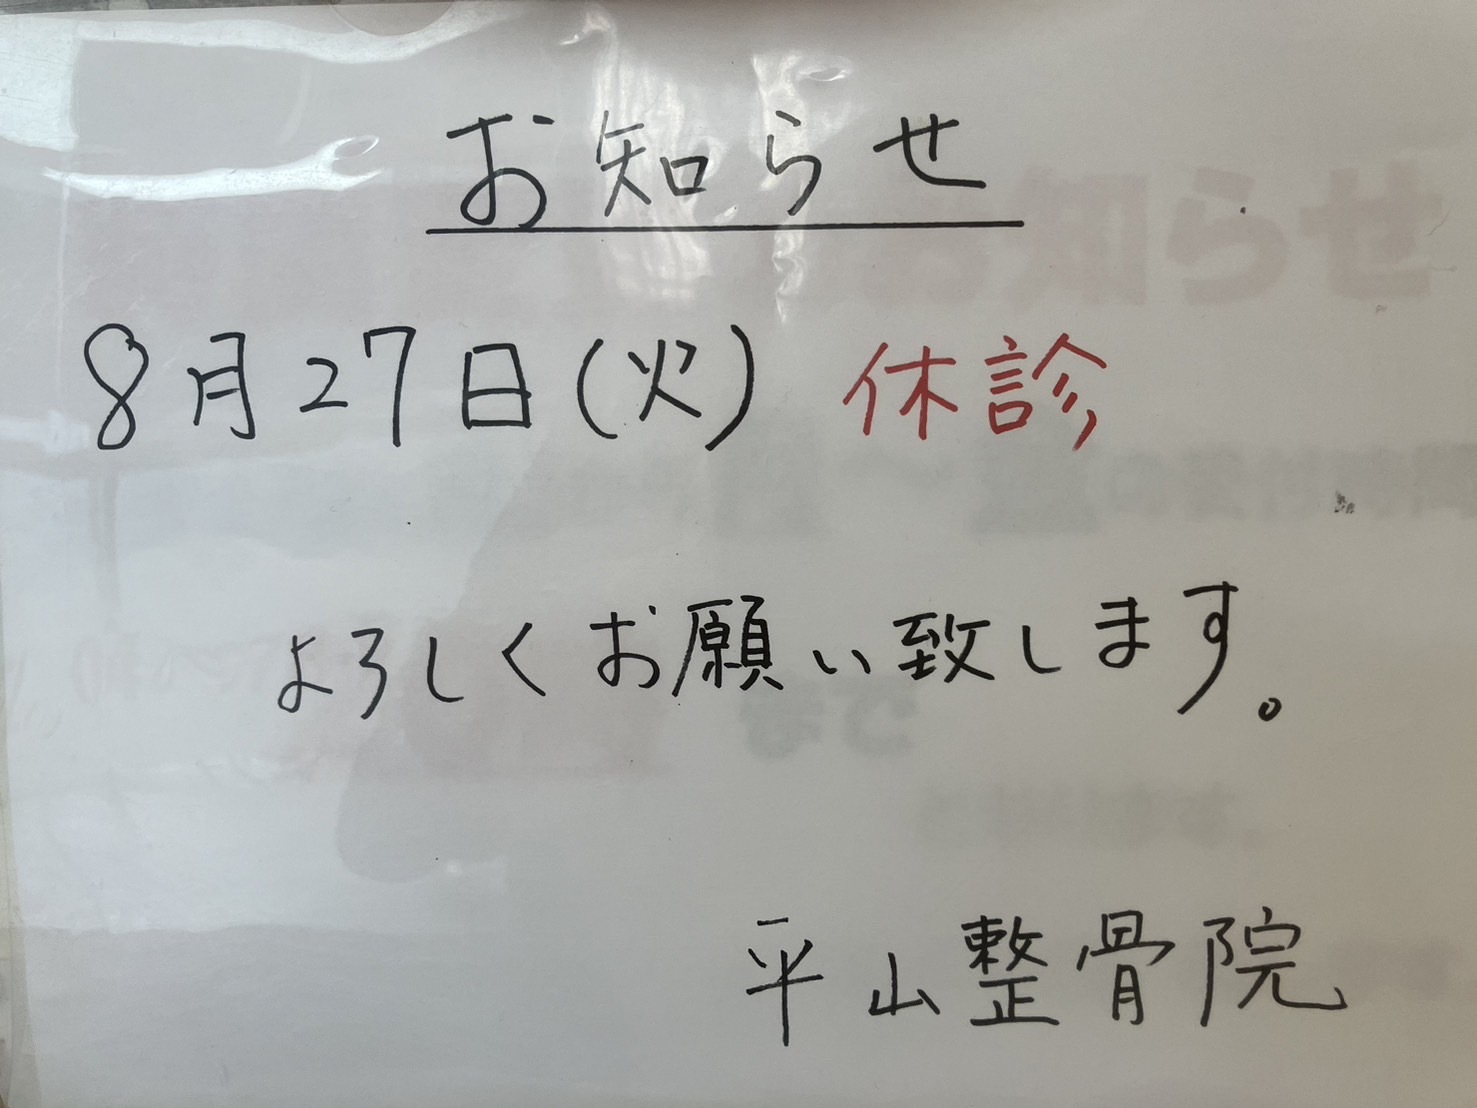 お知らせ
8月27日(火) 休診
よろしくお願い致します。
平山整骨院